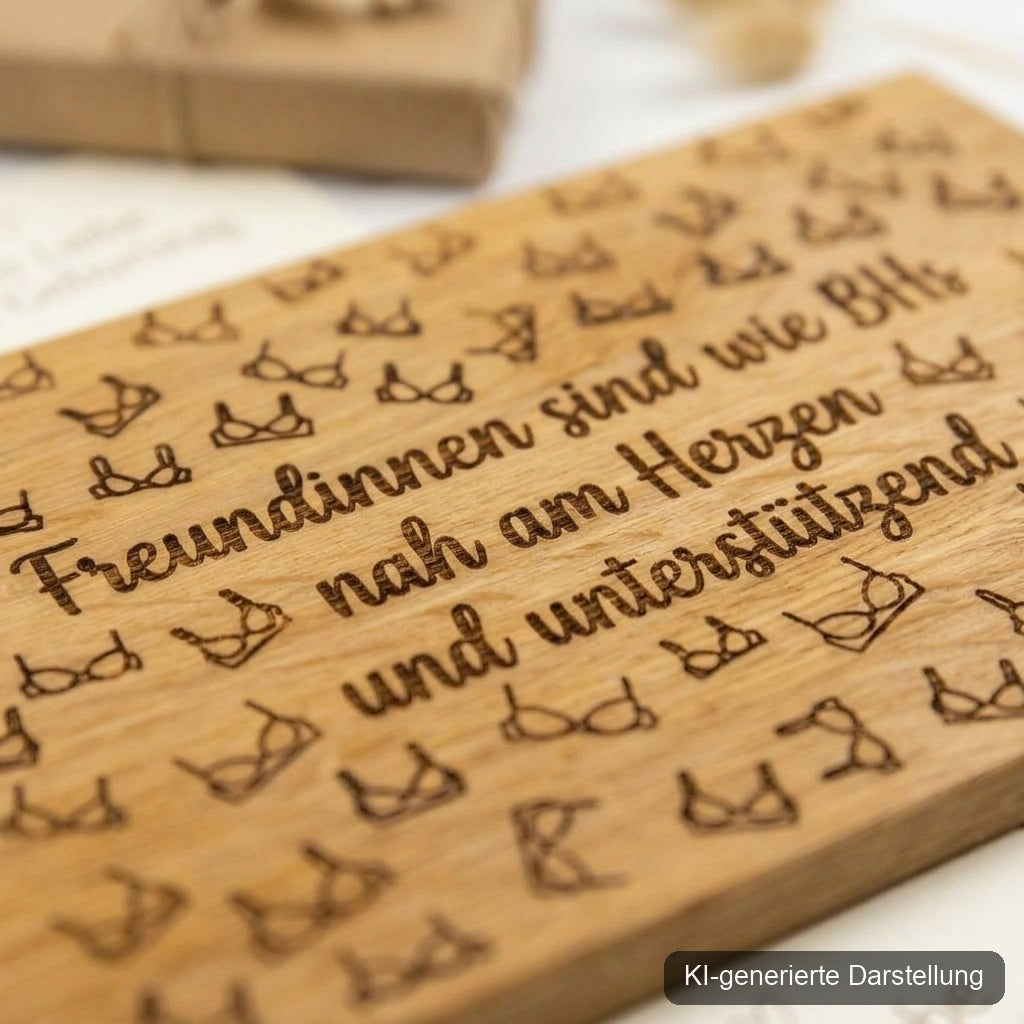 Freundinnen sind wie BHs
nah am Herzen
und unterstützend
KI-generierte Darstellung